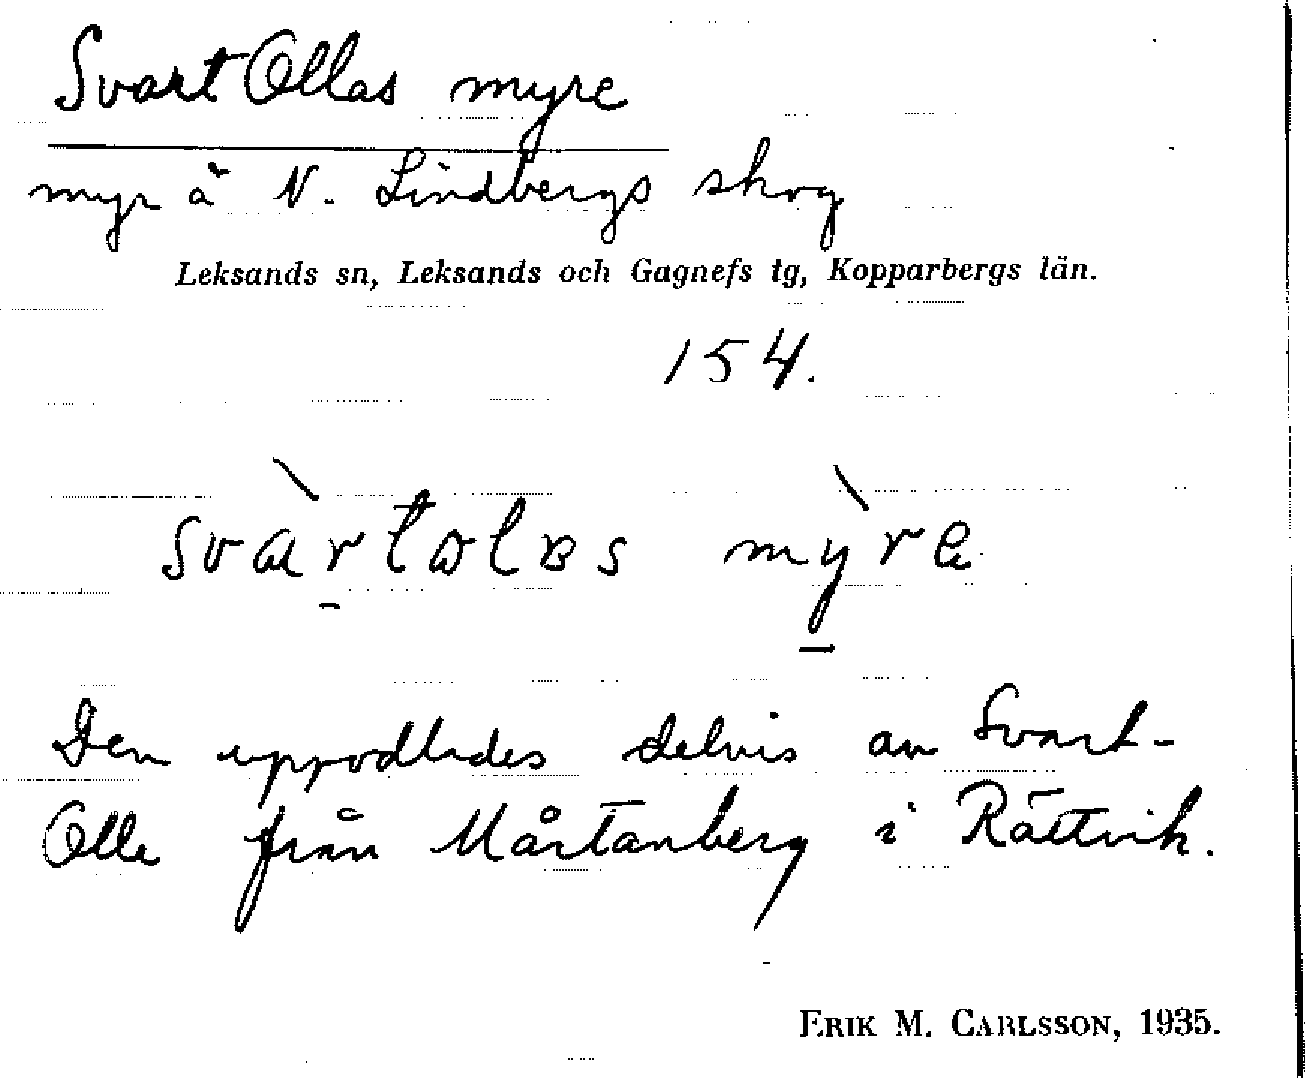 Svart Ollas myre
myr å N. Lindbergs skog
Leksands sn, Leksands och Gagnefs tg, Kopparbergs län.
154.
myre
Den uppodlades delvis av Svart-
Olle från Mårtanberg i Rättvik.
ERIK M. CARLSSON, 1935.